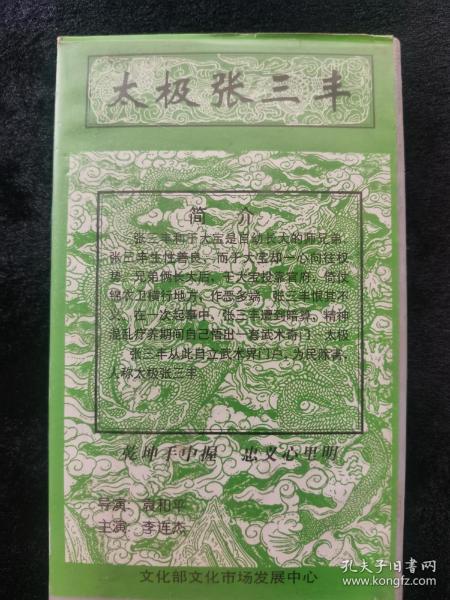 太极张三丰
简 介
张三丰和于大宝是自幼长大的师兄弟，
张三丰生性善良，而于大宝却一心向往权
势，兄弟俩长大后，于大宝投靠官府，倚仗
锦衣卫横行地方，作恶多端，张三丰恨其不
义，在一次起事中，张三丰遭到暗算，精神
混乱疗养期间自己悟出一套武术奇门：太极
张三丰从此自立武术界门户，为民除害，
人称太极张三丰
乾坤手中握 忠义心里明
导演：袁和平
主演：李连杰
文化部文化市场发展中心
孔夫子旧书网
www.kongfz.com